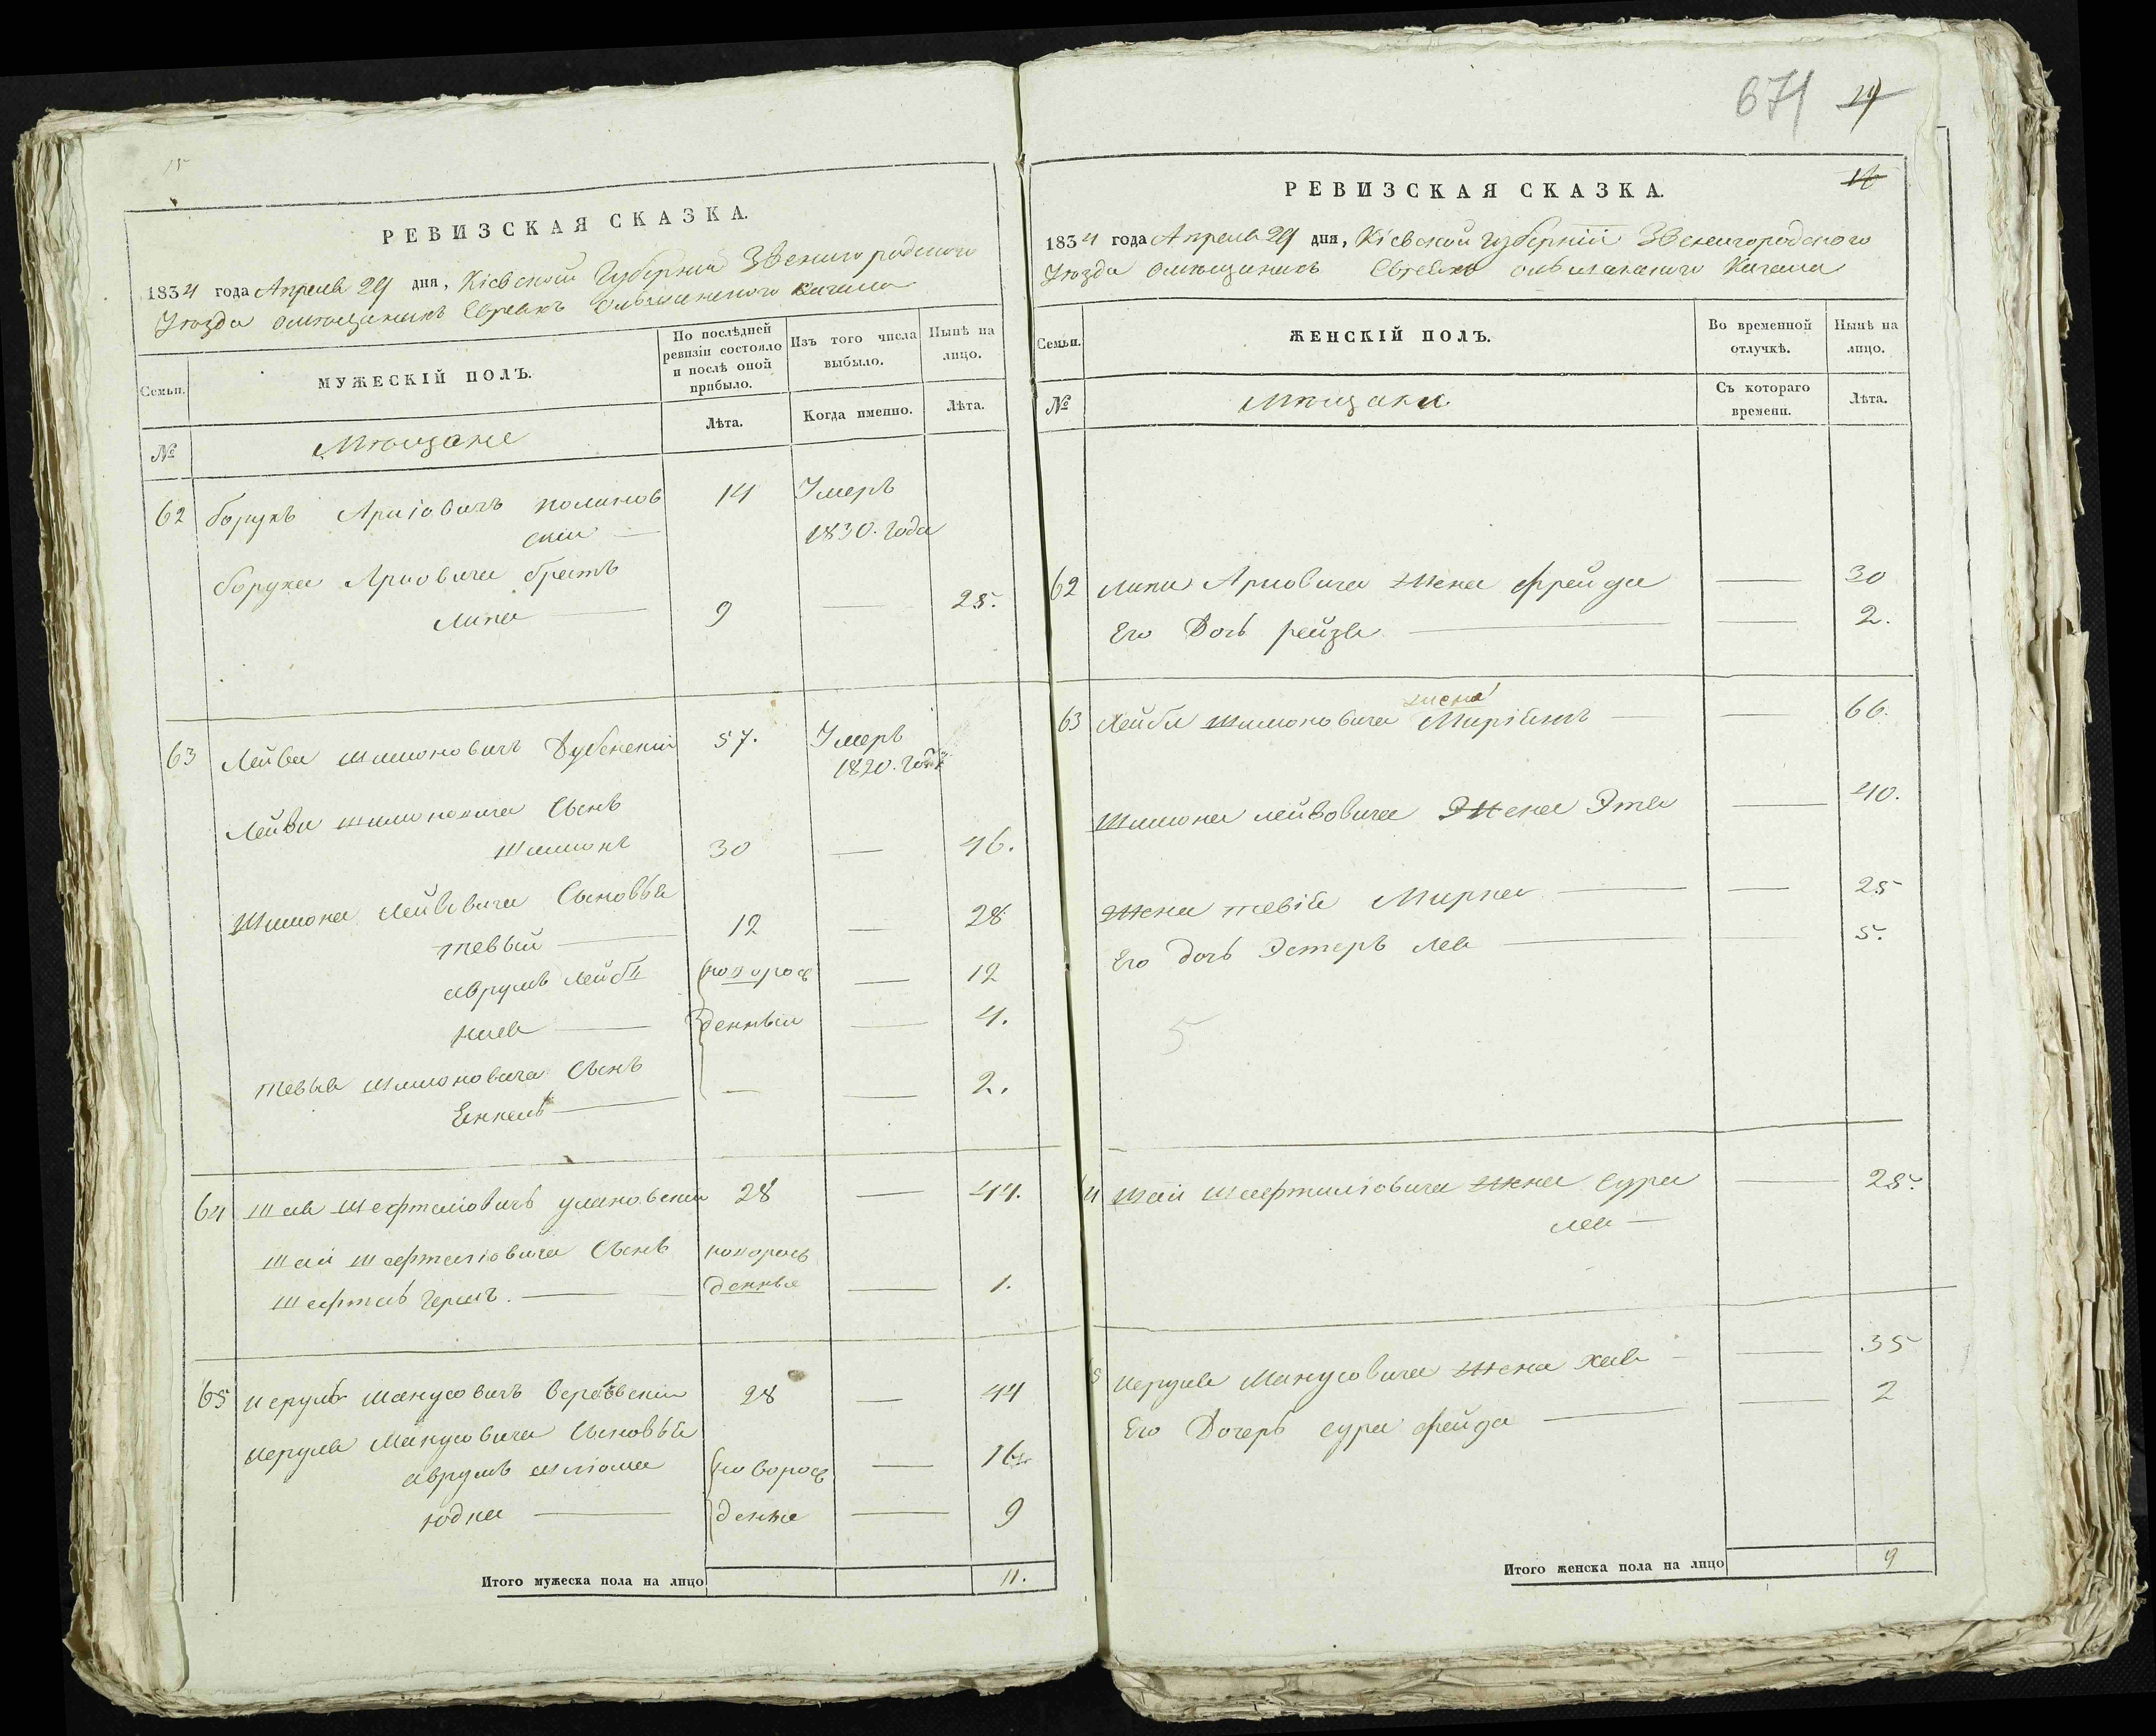 15
РЕВИЗСКАЯ СКАЗКА.
1834 года Апреля 29 дня, Кіевской Губерніи Звенигородского
Уезда О мещанинѣ Евреяхъ Ольшанского Кагала
Семьи.
МУЖЕСКІЙ ПОЛЪ.
По послѣдней ревизіи состояло и послѣ оной прибыло.
Изъ того числа выбыло.
Нынѣ на лицо.
№
Мѣщане
Лѣта.
Когда именно.
Лѣта.
62 Борухъ Аріовичъ Полинов 14 Умеръ
скій — 1830. года
Боруха Ариовича братъ
Липа — 9 — 25.
63 Лейба Шимоновичъ Дубенскій 57. Умеръ
1820. года
Лейби Шимоновича Сынъ
Шимонъ 30 — 46.
Шимона Лейбовича Сыновья
тевый — 12 — 28
Аврумъ Лейбъ новорож — 12
— денныи — 4.
Тевыя Шимоновича Сынъ
Енкель — — — 2.
64 Шая Шефтеліовичъ улановскій 28 — 44.
Шаи Шефтеліовича Сынъ новорож
Шефтель Гершъ. — денные — 1.
65 Иерухъ Манусовичъ Вербовскій 28 — 44
Манусовича Сыновья
Аврумъ Шліома новорож — 16
Юдка — денные — 9
Итого мужеска пола на лицо 11.
671 29
РЕВИЗСКАЯ СКАЗКА.
1834 года Апреля 29 дня, Кіевской Губерніи Звенигородского
Уезда О мещанинѣ Евреяхъ Ольшанского Кагала
Семьи.
ЖЕНСКІЙ ПОЛЪ.
Во временной отлучкѣ.
Нынѣ на лицо.
№
Мѣщанки
Съ котораго времени.
Лѣта.
62 Липи Ариовича Жена Фрейда — 30
Его Дочь рейзя — — 2.
жена
63 Лейби Шимоновича Миріямъ — — 66.
Шимона лейбовича Жена Этя — 40.
Жена тевія Мирка — — 25
Его дочь Эстеръ лея — — 5.
5
Шаи Шефтеліовича Жена Сура — 25.
лея —
Манусовича Жена Хая — — 35
Его Дочерь Сура Фейга — — 2
Итого женска пола на лицо 9